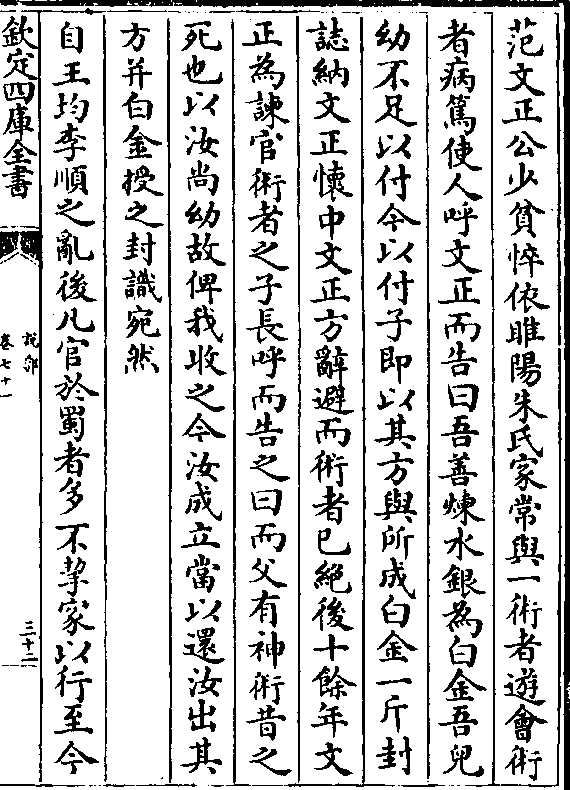 范文正公少貧悴依睢陽朱氏家常與一術者遊會術
者病篤使人呼文正而告曰吾善煉水銀為白金吾兒
幼不足以付今以付子即以其方與所成白金一斤封
誌納文正懷中文正方辭避而術者已絕後十餘年文
正為諫官術者之子長呼而告之曰而父有神術昔之
死也以汝尚幼故俾我收之今汝成立當以還汝出其
方并白金授之封識宛然
自王均李順之亂後凡官於蜀者多不挈家以行至今
欽定四庫全書
說郛
卷七十一
三十二